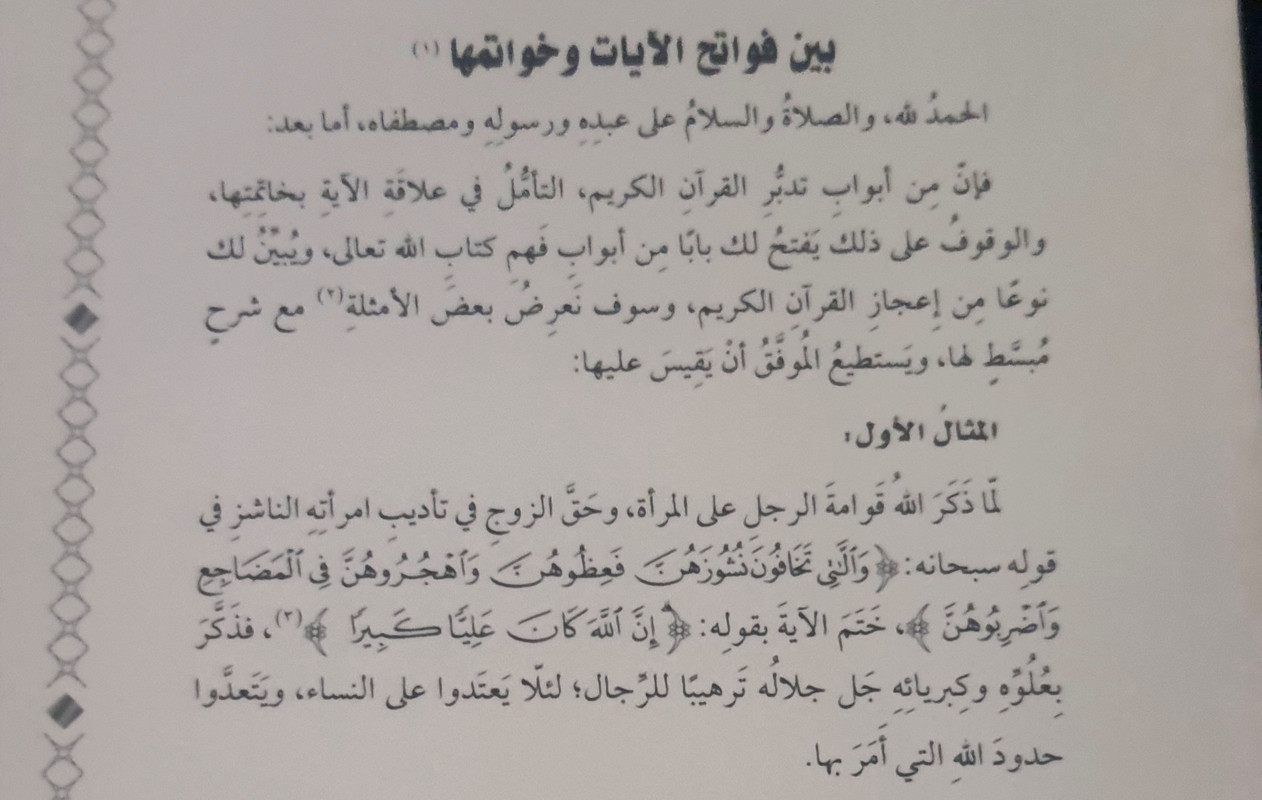 بين فواتح الآيات وخواتمها (١)
الحمدُ لله، والصلاةُ والسلامُ على عبدِهِ ورسولِهِ ومصطفاه، أما بعد:
فإنّ مِن أبوابِ تدبُّرِ القرآنِ الكريم، التأمُّلُ في علاقَةِ الآيةِ بخاتِمَتِها،
والوقوفُ على ذلك يَفتحُ لك بابًا مِن أبوابِ فَهمِ كتابِ الله تعالى، ويُبيِّنُ لك
نوعًا مِن إعجازِ القرآنِ الكريم، وسوف نَعرِضُ بعضَ الأمثلةِ(٢) مع شرحٍ
مُبسَّطٍ لها، ويَستطيعُ المُوفَّقُ أنْ يَقِيسَ عليها:
المثالُ الأول:
لمّا ذَكَرَ اللهُ قَوامةَ الرجلِ على المرأة، وحَقَّ الزوجِ في تأديبِ امرأتِهِ الناشزِ في
قولِه سبحانه: ﴿وَٱلَّٰتِي تَخَافُونَ نُشُوزَهُنَّ فَعِظُوهُنَّ وَٱهْجُرُوهُنَّ فِى ٱلْمَضَاجِعِ
وَٱضْرِبُوهُنَّ﴾، خَتَمَ الآيةَ بقولِه: ﴿إِنَّ ٱللَّهَ كَانَ عَلِيًّا كَبِيرًا﴾(٣)، فذَكَّرَ
بِعُلُوِّهِ وكِبريائِهِ جَل جلالُه تَرهيبًا للرِّجال؛ لئلّا يَعتَدوا على النساء، ويَتَعدَّوا
حدودَ اللهِ التي أَمَرَ بها.